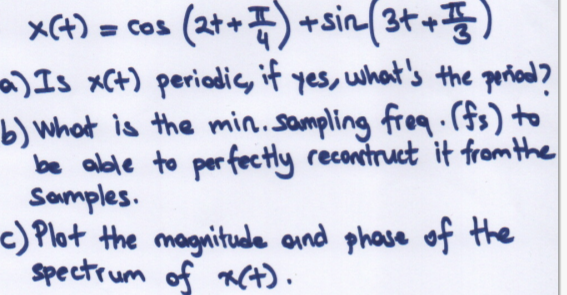 x(t) = cos (2t + π/4) + sin(3t + π/3)
a) Is x(t) periodic, if yes, what's the period?
b) What is the min. sampling freq. (fs) to
be able to perfectly reconstruct it from the
samples.
c) Plot the magnitude and phase of the
spectrum of x(t).